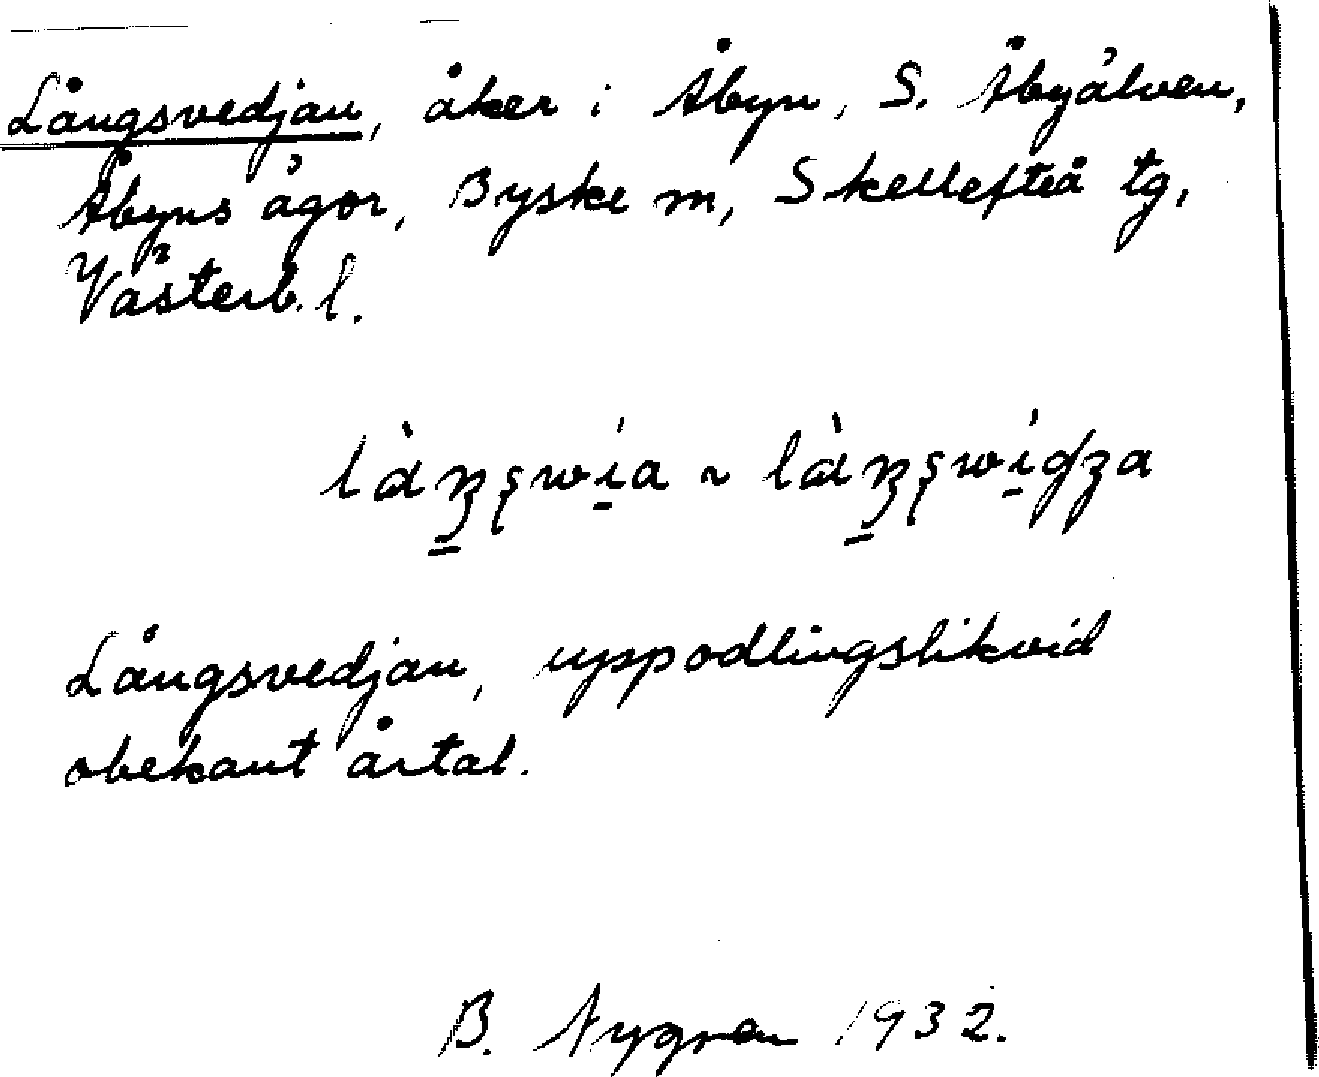 Långsvedjan, åker i Åbyn, S. Åbyälven,
Åbyns ägor, Byske m, Skellefteå tg,
Västerb. l.
Långsvedjan, uppodlingslikvid
obekant årtal.
B. Nygren 1932.